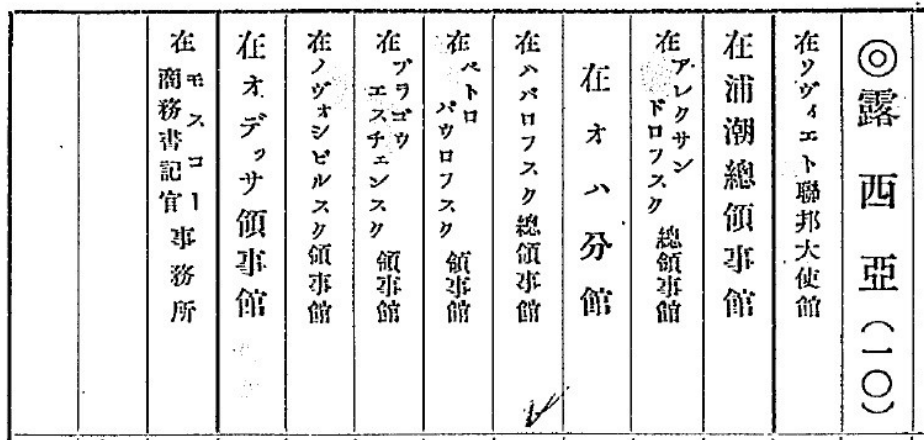 ◎露西亞(一〇)
在ソヴィエト聯邦大使館
在浦潮總領事館
在アレクサンドロフスク總領事館
在オハ分館
在ハバロフスク總領事館
在ペトロパウロフスク領事館
在ブラゴウエスチェンスク領事館
在ノヴォシビルスク領事館
在オデッサ領事館
在モスコー商務書記官事務所